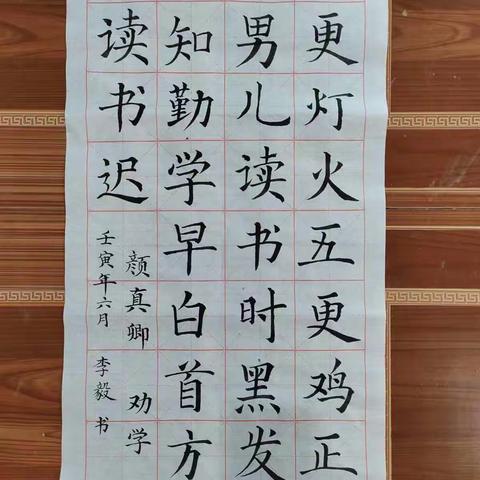 更灯火五更鸡正
男儿读书时黑发
知勤学早白首方
读书迟
颜真卿 劝学
壬寅年六月 李毅书